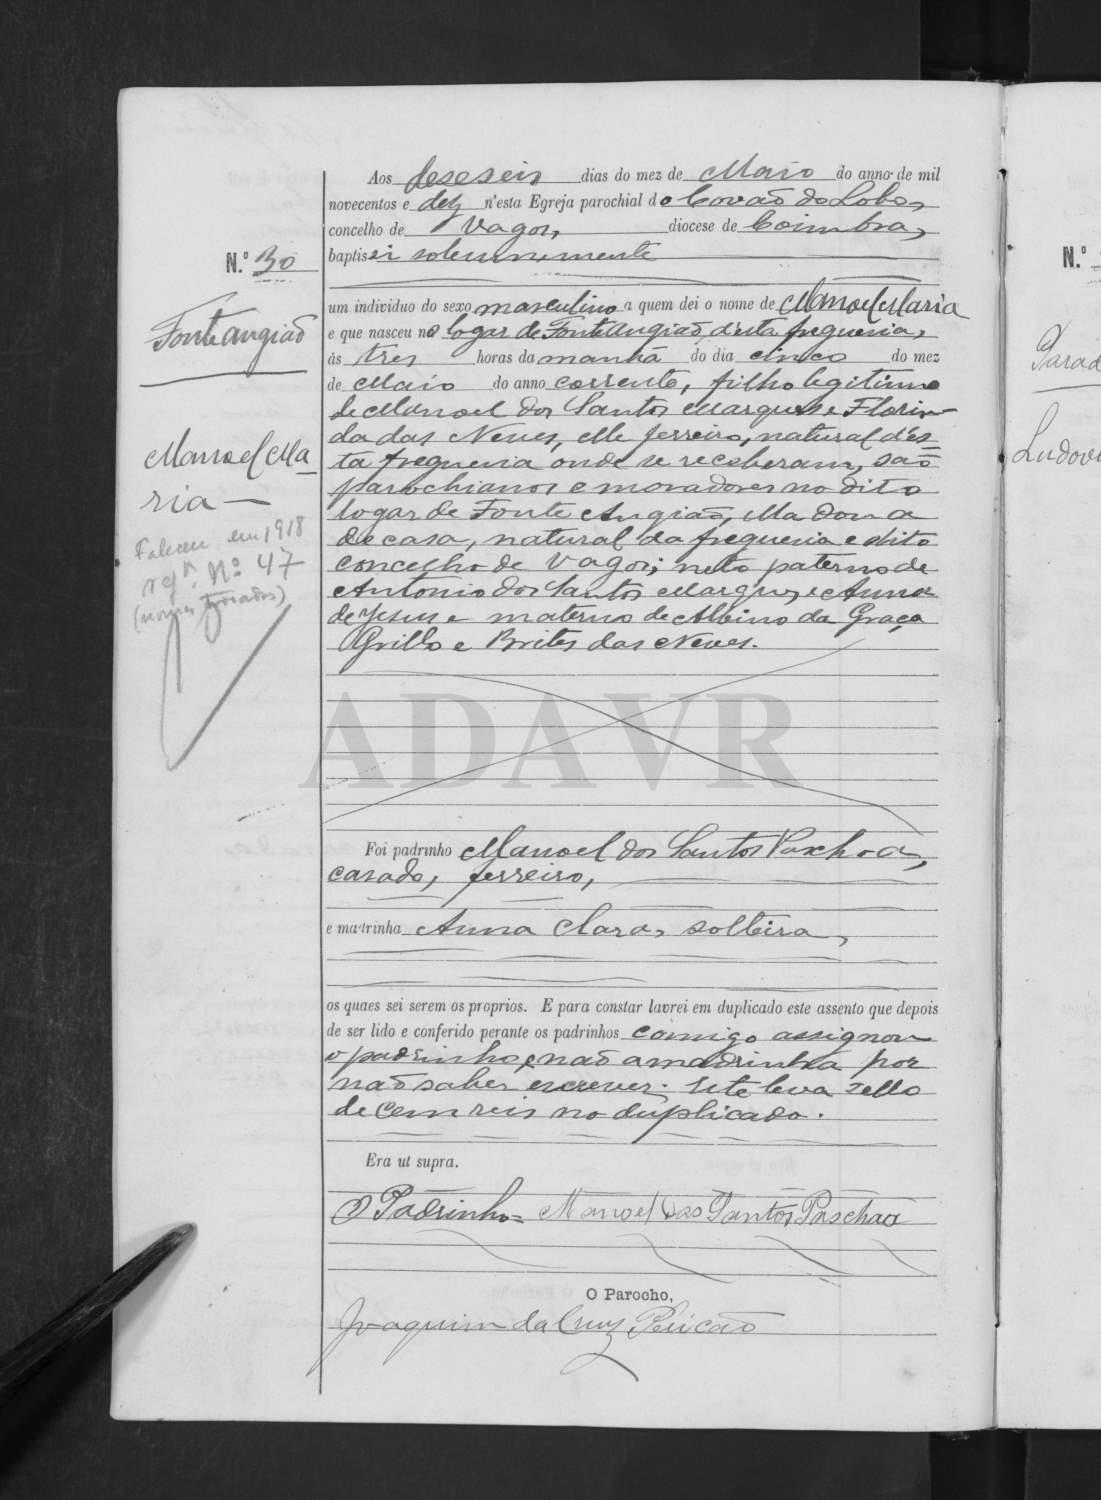 Aos deseseis dias do mez de Maio do anno de mil
novecentos e dez n'esta Egreja parochial do Covão do Lobo,
concelho de Vagos, diocese de Coimbra,
baptisei solemnemente
N.º 30
um individuo do sexo masculino a quem dei o nome de Manoel Maria
Fonte Angião
e que nasceu no logar de Fonte Angião, d'esta freguesia,
ás tres horas da manhã do dia cinco do mez
de Maio do anno corrente, filho legitimo
de Manoel dos Santos Marques e Florin-
da das Neves, elle ferreiro, natural d'es-
ta freguesia onde se receberam, são
parochianos e moradores no dito
logar de Fonte Angião, ella dona
de casa, natural da freguesia e dito
concelho de Vagos; neto paterno de
Antonio dos Santos Marques e Anna
de Jesus e materno de Albino da Graça
Grillo e Brites das Neves.
Manoel Ma-
ria
Faleceu em 1918
regº Nº 47
(nomes trocados)
ADAVR
Foi padrinho Manoel dos Santos Paschoa,
casado, ferreiro,
e madrinha Anna Clara, solteira,
os quaes sei serem os proprios. E para constar lavrei em duplicado este assento que depois
de ser lido e conferido perante os padrinhos comigo assignou
o padrinho e não a madrinha por
não saber escrever. Este leva sello
de cem reis no duplicado.
Era ut supra.
O Padrinho = Manoel dos Santos Paschoa
O Parocho,
Joaquim da Cruz Pericão
N.º
Parad
Ludovi